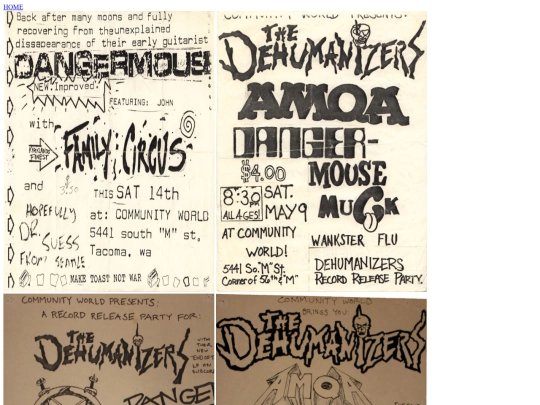 HOME
Back after many moons and fully
recovering from theunexplained
dissapearance of their early guitarist
DANGERMOUSE
NEW. Improved.
FEATURING: JOHN
with
FAMILY CIRCUS
3.50
and
THIS SAT 14th
HOPEFULLY
DR. SUESS
FROM SEATTLE
at: COMMUNITY WORLD
5441 south "M" st.
Tacoma, wa
MAKE TOAST NOT WAR
COMMUNITY WORLD PRESENTS:
THE
DEHUMANIZERS
AMQA
DANGER-
MOUSE
$4.00
MUCK
8:30
ALL AGES!
SAT.
MAY 9
AT COMMUNITY
WORLD!
WANKSTER FLU
5441 So. "M" St.
Corner of 56th & "M"
DEHUMANIZERS
RECORD RELEASE PARTY.
COMMUNITY WORLD PRESENTS:
A RECORD RELEASE PARTY FOR:
THE
DEHUMANIZERS
WITH
THEIR
NEW
DANGE
COMMUNITY WORLD
BRINGS YOU
THE
DEHUMANIZERS
AMQA